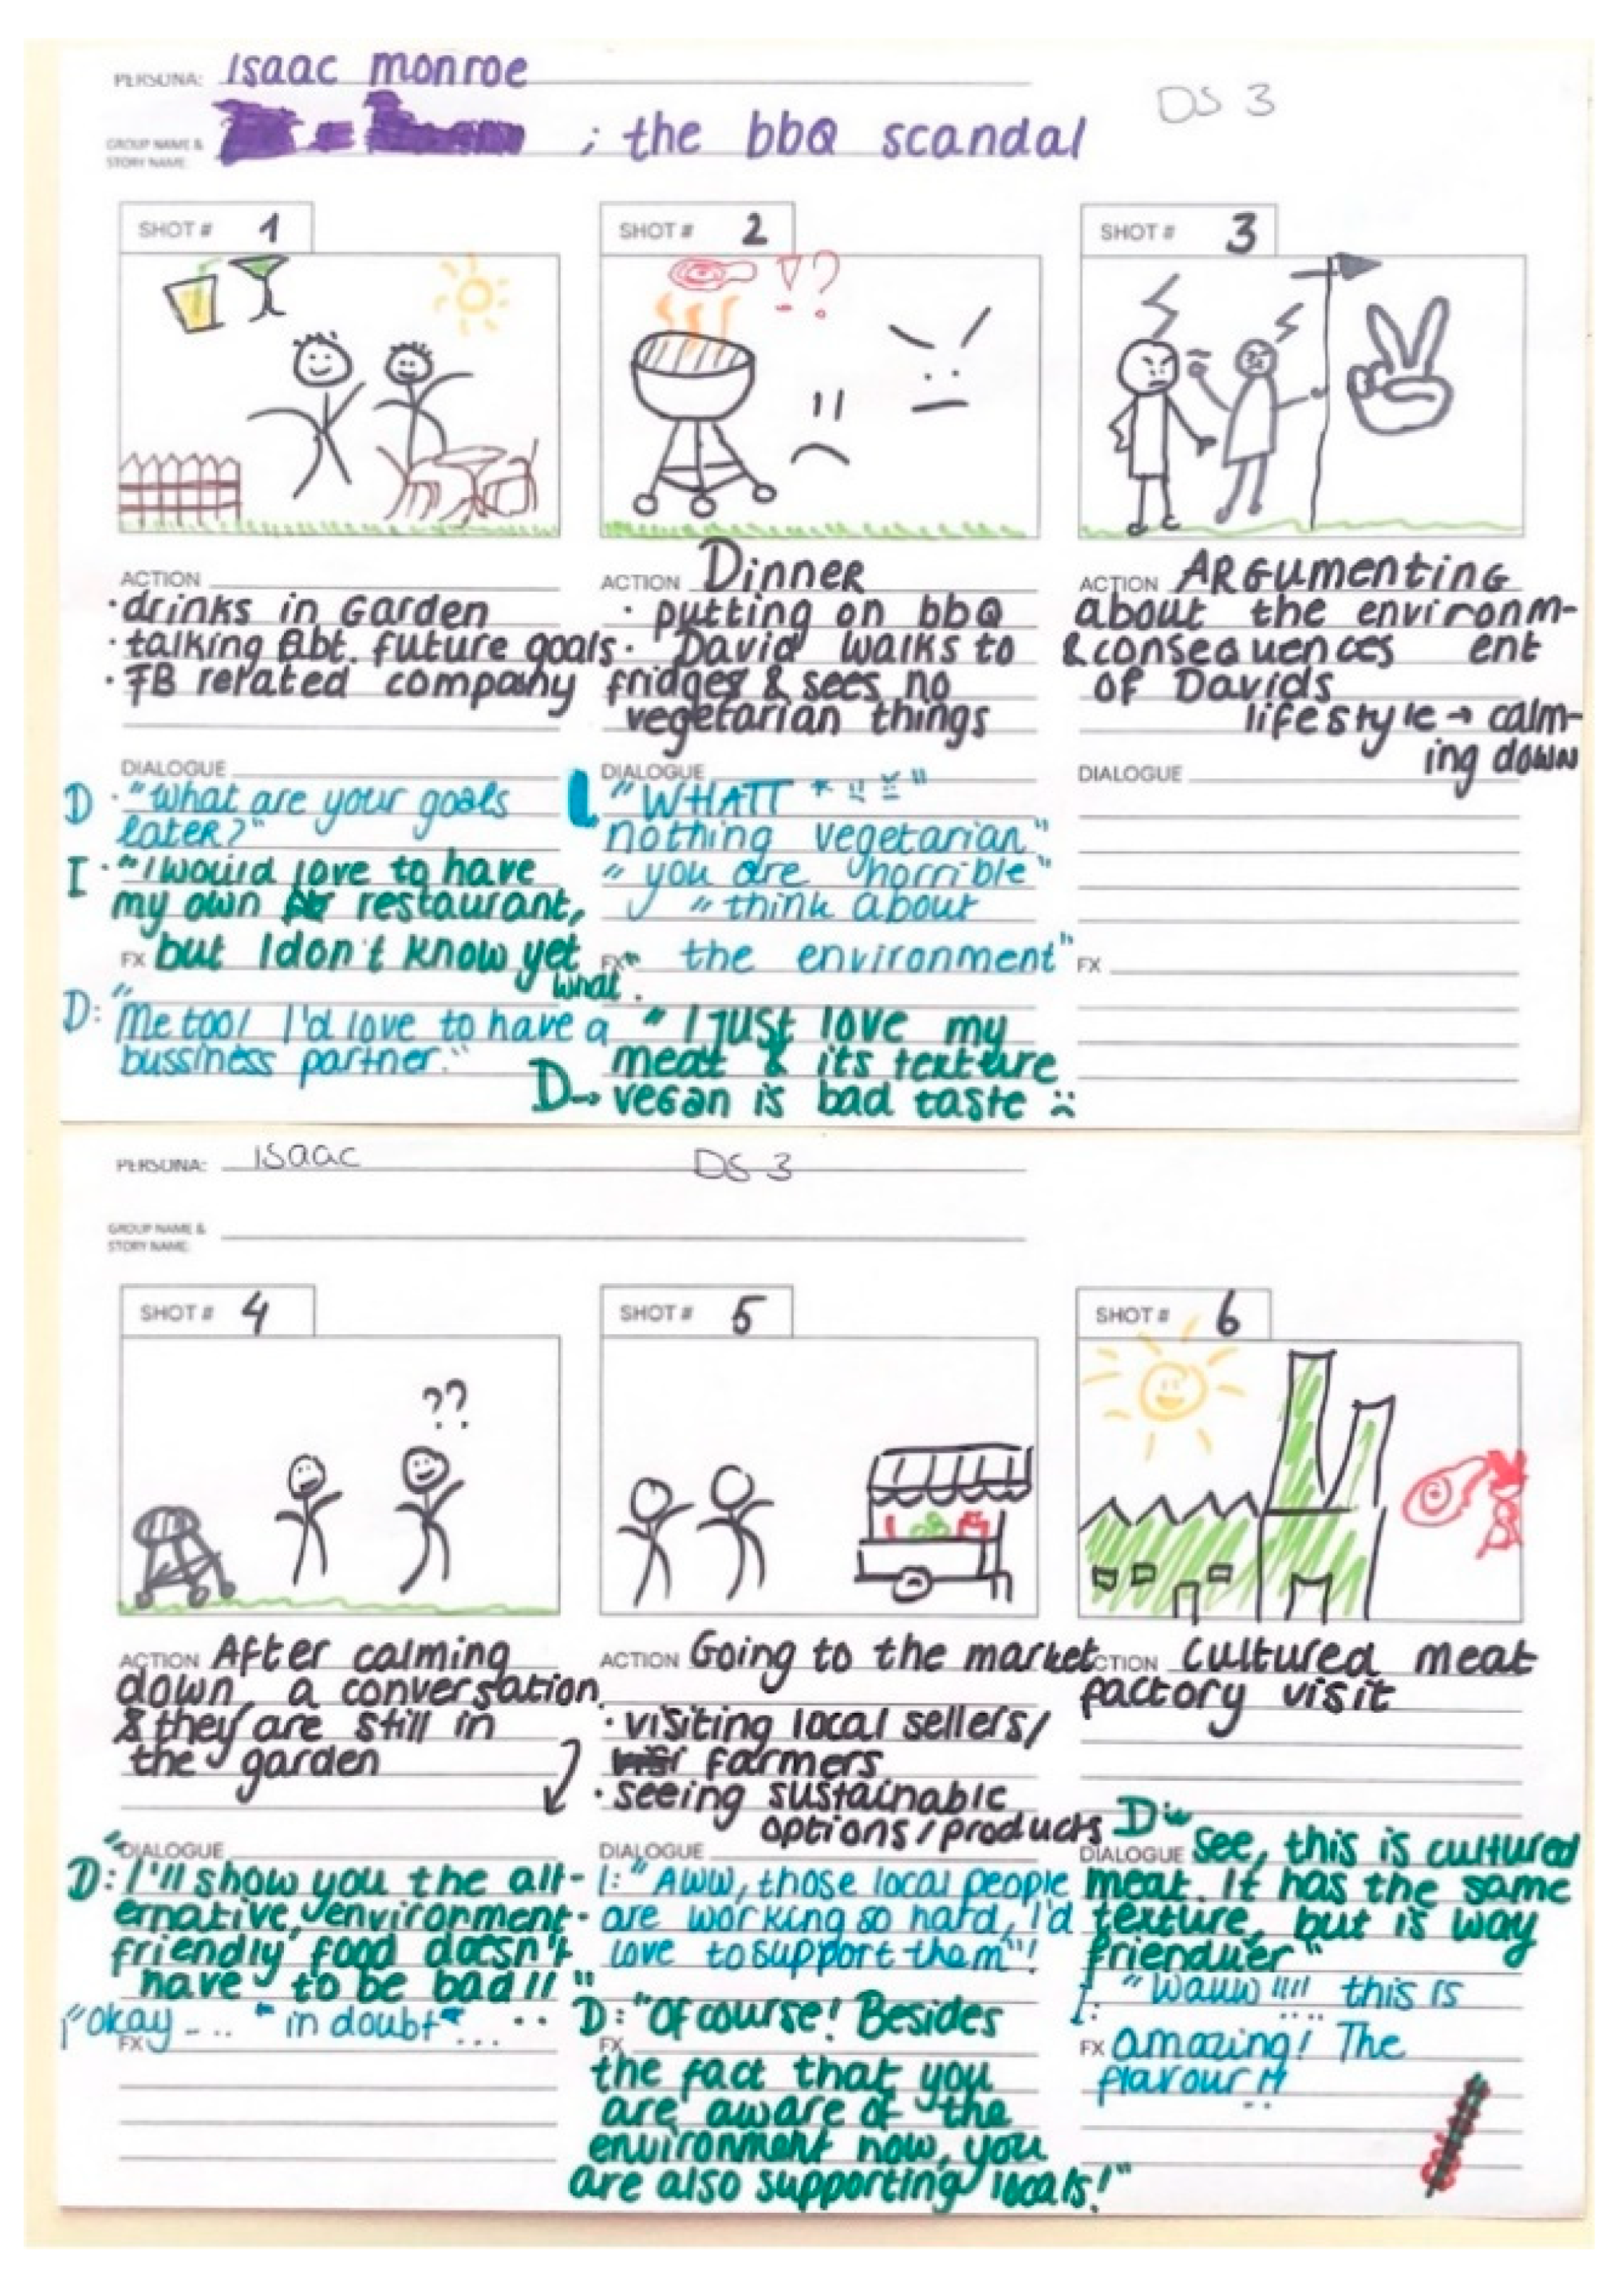 PERSONA: Isaac monroe
DS 3
GROUP NAME &
STORY NAME: ; the bbQ scandal
SHOT # 1
ACTION
· drinks in Garden
· talking Abt. future goals
· FB related company
DIALOGUE
D · "What are your goals
later?"
I · "I would love to have
my own restaurant,
FX but I don't know yet
what".
D: "Me too! I'd love to have a
bussiness partner."
SHOT # 2
!?
ACTION Dinner
· putting on bbQ
· David walks to
fridges & sees no
vegetarian things
DIALOGUE
"WHATT * !! !! "
nothing vegetarian"
" you are horrible"
" think about
FX the environment"
" I just love my
meat & its texture
D→ vegan is bad taste :(
SHOT # 3
ACTION ARGumenting
about the environm-
& consequences ent
of Davids
lifestyle → calm-
ing down
DIALOGUE
FX
PERSONA: isaac DS 3
GROUP NAME &
STORY NAME:
SHOT # 4
??
ACTION After calming
down, a conversation
& they are still in
the garden
"DIALOGUE
D: I'll show you the alt-
ernative, environment-
friendly food doesn't
have to be bad!! "
I "Okay -... * in doubt* ...
FX
SHOT # 5
ACTION Going to the market
· visiting local sellers/
farmers
· seeing sustainable
options/products
DIALOGUE
I: "Aww, those local people
are working so hard, I'd
love to support them"!
D: "Of course! Besides
FX
the fact that you
are aware of the
environment now, you
are also supporting locals!"
SHOT # 6
ACTION cultured meat
factory visit
D:"
DIALOGUE See, this is cultured
meat. It has the same
texture, but is way
friendlier"
I: "Wauw !!!! this is
FX amazing! The
flavour !!